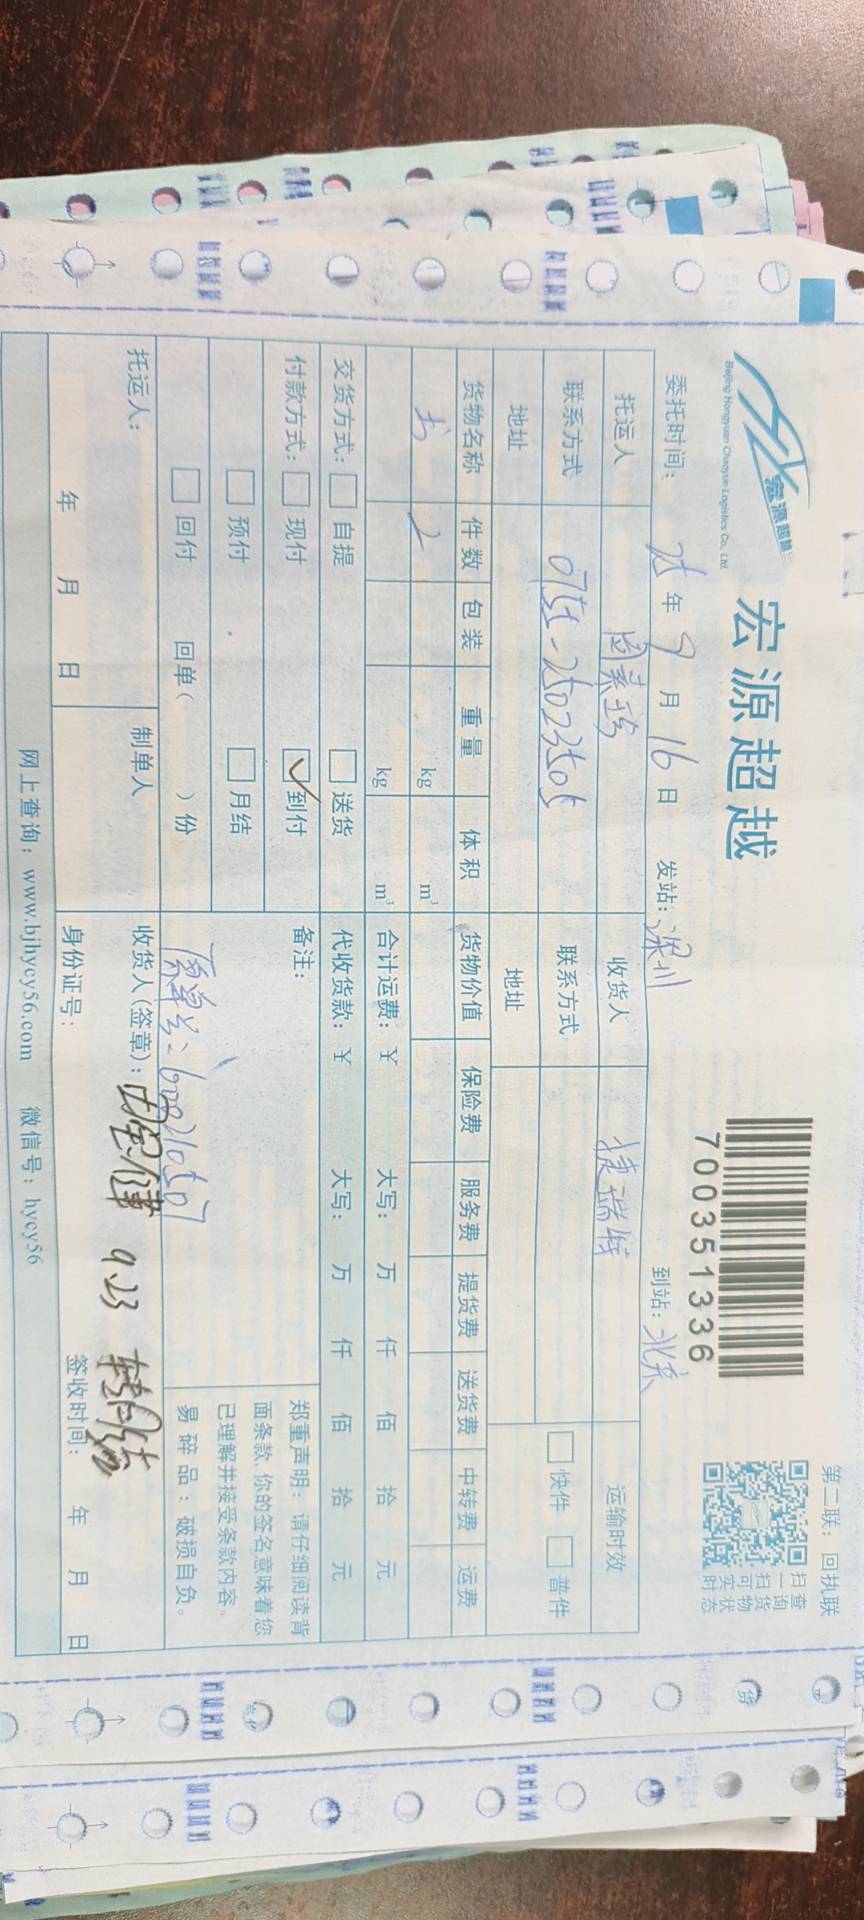 第二联：回执联
宏源超越
Beijing Hongyuan Chaoyue Logistics Co., Ltd.
宏源超越
7003513​36
扫一扫可实时
查询货物状态
委托时间：25年9月16日 发站：深圳 到站：北京
托运人 收货人 捷瑞特 运输时效
联系方式 0755-25023505 联系方式 快件 普件
地址 地址
货物名称 件数 包装 重量 体积 货物价值 保险费 服务费 提货费 送货费 中转费 运费
书 2 kg m³
kg m³ 合计运费：¥ 大写： 万 仟 佰 拾 元
交货方式： 自提 送货 代收货款：¥ 大写： 万 仟 佰 拾 元
付款方式： 现付 ✓到付 备注：
预付 月结
回付 回单（ ）份
原单号：
郑重声明：请仔细阅读背
面条款，你的签名意味着您
已理解并接受条款内容。
易碎品：破损自负。
托运人： 制单人 收货人（签章）： 9.23
年 月 日 身份证号： 签收时间： 年 月 日
网上查询：www.bjhycy56.com 微信号：hycy56